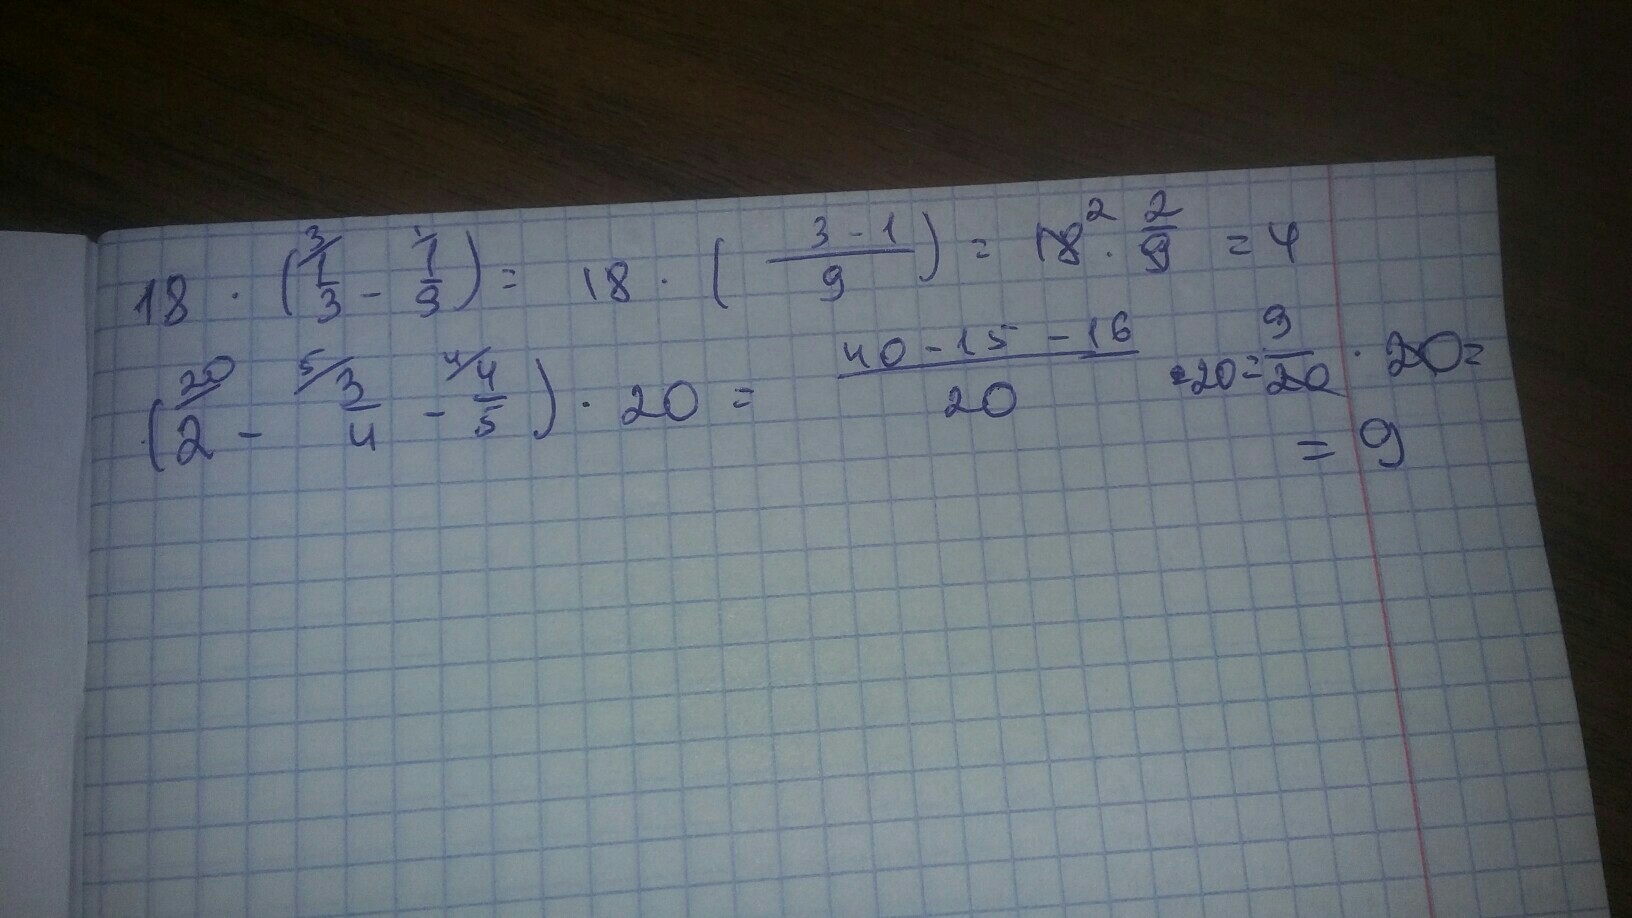 18 · (3/ 1/3 - 1/ 1/9) = 18 · ((3-1)/9) = 18² · 2/9 = 4
(20/ 2 - 5/ 3/4 - 4/ 4/5) · 20 = (40-15-16)/20 · 20 = 9/20 · 20 =
= 9